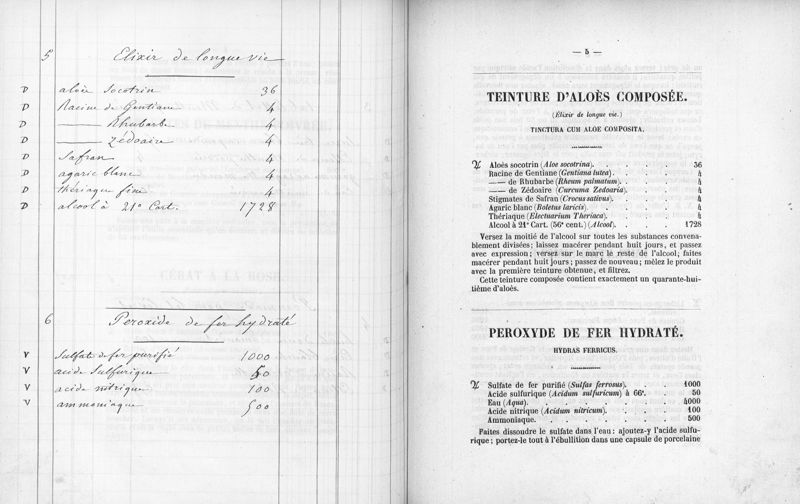 5 Elixir de longue vie
D aloès Socotrin 36
D Racine de Gentiane 4
D —— Rhubarbe 4
D —— Zédoaire 4
D Safran 4
D agaric blanc 4
D thériaque fine 4
D alcool à 21° Cart. 1728
6 Peroxide de fer hydraté
V Sulfat de fer purifié 1000
V acide Sulfurique 50
V acide nitrique 100
V ammoniaque 500
— 5 —
TEINTURE D'ALOÈS COMPOSÉE.
(Élixir de longue vie.)
TINCTURA CUM ALOE COMPOSITA.
Aloès socotrin (Aloe socotrina). . . . 36
Racine de Gentiane (Gentiana lutea). . . . 4
—— de Rhubarbe (Rheum palmatum). . . . 4
—— de Zédoaire (Curcuma Zedoaria) . . . 4
Stigmates de Safran (Crocus sativus). . . . 4
Agaric blanc (Boletus laricis). . . . 4
Thériaque (Electuarium Theriaca) . . . 4
Alcool à 21e Cart. (56e cent.) (Alcool). . . . 1728
Versez la moitié de l'alcool sur toutes les substances convena-
blement divisées; laissez macérer pendant huit jours, et passez
avec expression; versez sur le marc le reste de l'alcool; faites
macérer pendant huit jours; passez de nouveau; mêlez le produit
avec la première teinture obtenue, et filtrez.
Cette teinture composée contient exactement un quarante-hui-
tième d'aloès.
PEROXYDE DE FER HYDRATÉ.
HYDRAS FERRICUS.
Sulfate de fer purifié (Sulfas ferrosus). . . . 1000
Acide sulfurique (Acidum sulfuricum) à 66e. . . 50
Eau (Aqua). . . . . . . 4000
Acide nitrique (Acidum nitricum). . . . 100
Ammoniaque. . . . . . . 500
Faites dissoudre le sulfate dans l'eau: ajoutez-y l'acide sulfu-
rique; portez-le tout à l'ébullition dans une capsule de porcelaine